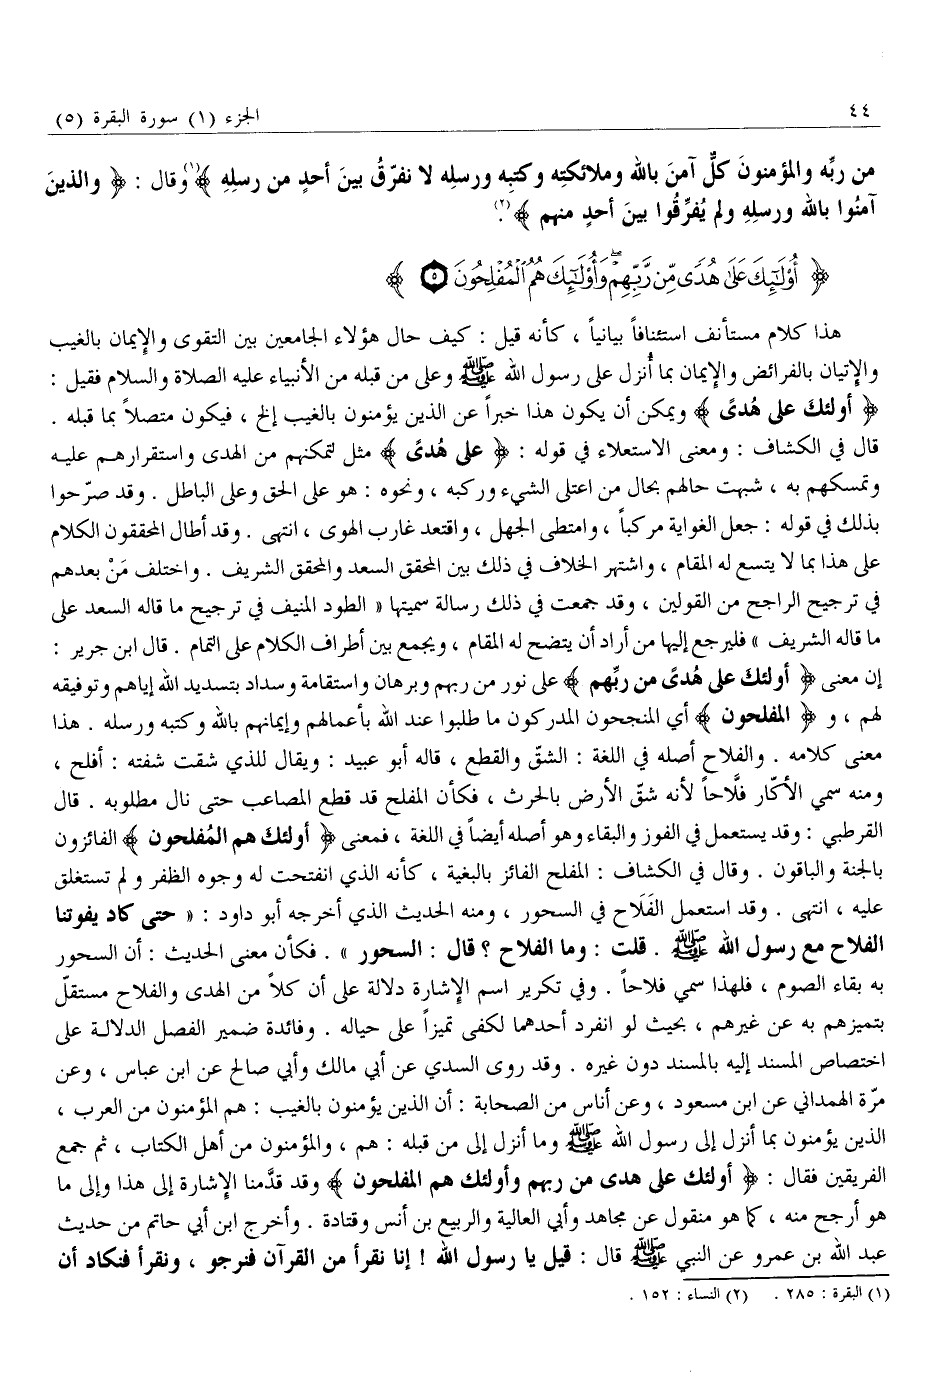 ٤٤
الجزء (١) سورة البقرة (٥)
من ربِّه والمؤمنونَ كلٌّ آمنَ بالله وملائكتِه وكتبِه ورسلِه لا نفرّقُ بينَ أحدٍ من رسلِهِ ﴾(١) وقال : ﴿ والذينَ
آمنُوا بالله ورسلِهِ ولم يُفرِّقُوا بينَ أحدٍ منهم ﴾(٢).
﴿ أُوْلَٰٓئِكَ عَلَىٰ هُدًى مِّن رَّبِّهِمْ ۖ وَأُوْلَٰٓئِكَ هُمُ الْمُفْلِحُونَ ۝٥ ﴾
هذا كلام مستأنف استئنافاً بيانياً ، كأنه قيل : كيف حال هؤلاء الجامعين بين التقوى والإيمان بالغيب
والإتيان بالفرائض والإيمان بما أُنزل على رسول الله ﷺ وعلى من قبله من الأنبياء عليه الصلاة والسلام فقيل :
﴿ أولئكَ على هُدىً ﴾ ويمكن أن يكون هذا خبراً عن الذين يؤمنون بالغيب إلخ ، فيكون متصلاً بما قبله .
قال في الكشاف : ومعنى الاستعلاء في قوله : ﴿ على هُدىً ﴾ مثل لتمكنهم من الهدى واستقرارهم عليه
وتمسكهم به ، شبهت حالهم بحال من اعتلى الشيء وركبه ، ونحوه : هو على الحق وعلى الباطل . وقد صرّحوا
بذلك في قوله : جعل الغواية مركباً ، وامتطى الجهل ، واقتعد غارب الهوى ، انتهى . وقد أطال المحققون الكلام
على هذا بما لا يتسع له المقام ، واشتهر الخلاف في ذلك بين المحقق السعد والمحقق الشريف . واختلف مَنْ بعدهم
في ترجيح الراجح من القولين ، وقد جمعت في ذلك رسالة سميتها « الطود المنيف في ترجيح ما قاله السعد على
ما قاله الشريف » فليرجع إليها من أراد أن يتضح له المقام ، ويجمع بين أطراف الكلام على التمام . قال ابن جرير :
إن معنى ﴿ أولئكَ على هُدىً من ربِّهم ﴾ على نور من ربهم وبرهان واستقامة وسداد بتسديد الله إياهم وتوفيقه
لهم ، و ﴿ المفلحون ﴾ أي المنجحون المدركون ما طلبوا عند الله بأعمالهم وإيمانهم بالله وكتبه ورسله . هذا
معنى كلامه . والفلاح أصله في اللغة : الشقّ والقطع ، قاله أبو عبيد : ويقال للذي شقت شفته : أفلح ،
ومنه سمي الأكّار فلَّاحاً لأنه شقّ الأرض بالحرث ، فكأن المفلح قد قطع المصاعب حتى نال مطلوبه . قال
القرطبي : وقد يستعمل في الفوز والبقاء وهو أصله أيضاً في اللغة ، فمعنى ﴿ أولئكَ هم المُفلحون ﴾ الفائزون
بالجنة والباقون . وقال في الكشاف : المفلح الفائز بالبغية ، كأنه الذي انفتحت له وجوه الظفر ولم تستغلق
عليه ، انتهى . وقد استعمل الفَلَاح في السحور ، ومنه الحديث الذي أخرجه أبو داود : « حتى كاد يفوتنا
الفلاح مع رسول الله ﷺ . قلت : وما الفلاح ؟ قال : السحور » . فكأن معنى الحديث : أن السحور
به بقاء الصوم ، فلهذا سمي فلاحاً . وفي تكرير اسم الإشارة دلالة على أن كلاً من الهدى والفلاح مستقلّ
بتميزهم به عن غيرهم ، بحيث لو انفرد أحدهما لكفى تميزاً على حياله . وفائدة ضمير الفصل الدلالة على
اختصاص المسند إليه بالمسند دون غيره . وقد روى السدي عن أبي مالك وأبي صالح عن ابن عباس ، وعن
مرّة الهمداني عن ابن مسعود ، وعن أناس من الصحابة : أن الذين يؤمنون بالغيب : هم المؤمنون من العرب ،
الذين يؤمنون بما أنزل إلى رسول الله ﷺ وما أنزل إلى من قبله : هم ، والمؤمنون من أهل الكتاب ، ثم جمع
الفريقين فقال : ﴿ أولئك على هدى من ربهم وأولئك هم المفلحون ﴾ وقد قدَّمنا الإشارة إلى هذا وإلى ما
هو أرجح منه ، كما هو منقول عن مجاهد وأبي العالية والربيع بن أنس وقتادة . وأخرج ابن أبي حاتم من حديث
عبد الله بن عمرو عن النبي ﷺ قال : قيل يا رسول الله ! إنا نقرأ من القرآن فنرجو ، ونقرأ فنكاد أن
(١) البقرة : ٢٨٥ . (٢) النساء : ١٥٢ .